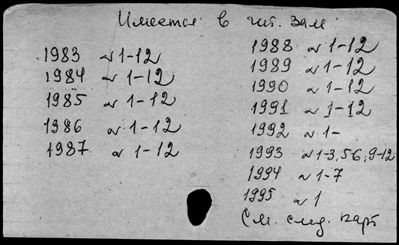 Имеется в чит. зале
1983 № 1-12
1984 № 1-12
1985 № 1-12
1986 № 1-12
1987 № 1-12
1988 № 1-12
1989 № 1-12
1990 № 1-12
1991 № 1-12
1992 № 1-
1993 № 1-3, 5-6; 9-12
1994 № 1-7
1995 № 1
См. след. карт